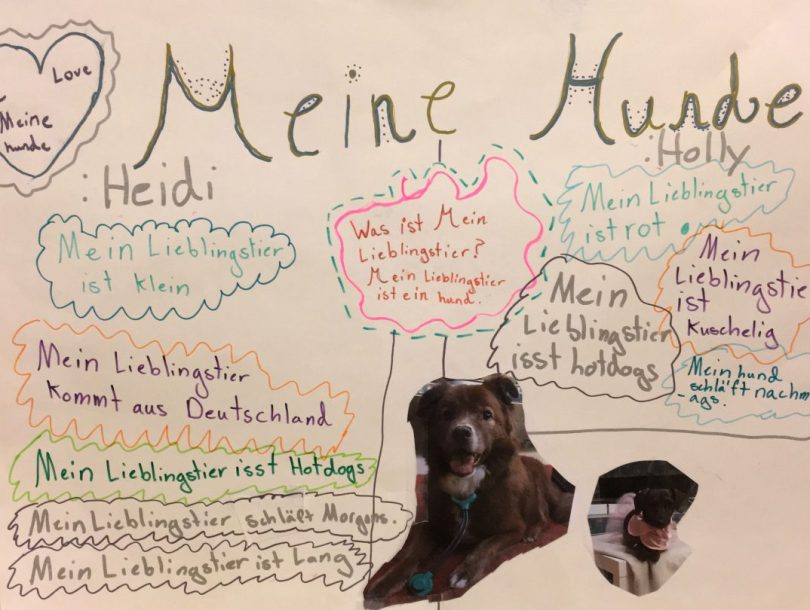 Love
Meine
hunde
Meine Hunde
:Heidi
:Holly
Mein Lieblingstier
ist klein
Mein Lieblingstier
kommt aus Deutschland
Mein Lieblingstier isst Hotdogs
Mein Lieblingstier schläft Morgens.
Mein Lieblingstier ist Lang
Was ist Mein
Lieblingstier?
Mein Lieblingstier
ist ein hund.
Mein Lieblingstier
ist rot.
Mein
Lieblingstie
ist
Kuschelig
Mein
Lieblingstier
isst hotdogs
Mein hund
schläft nachm
-ags.